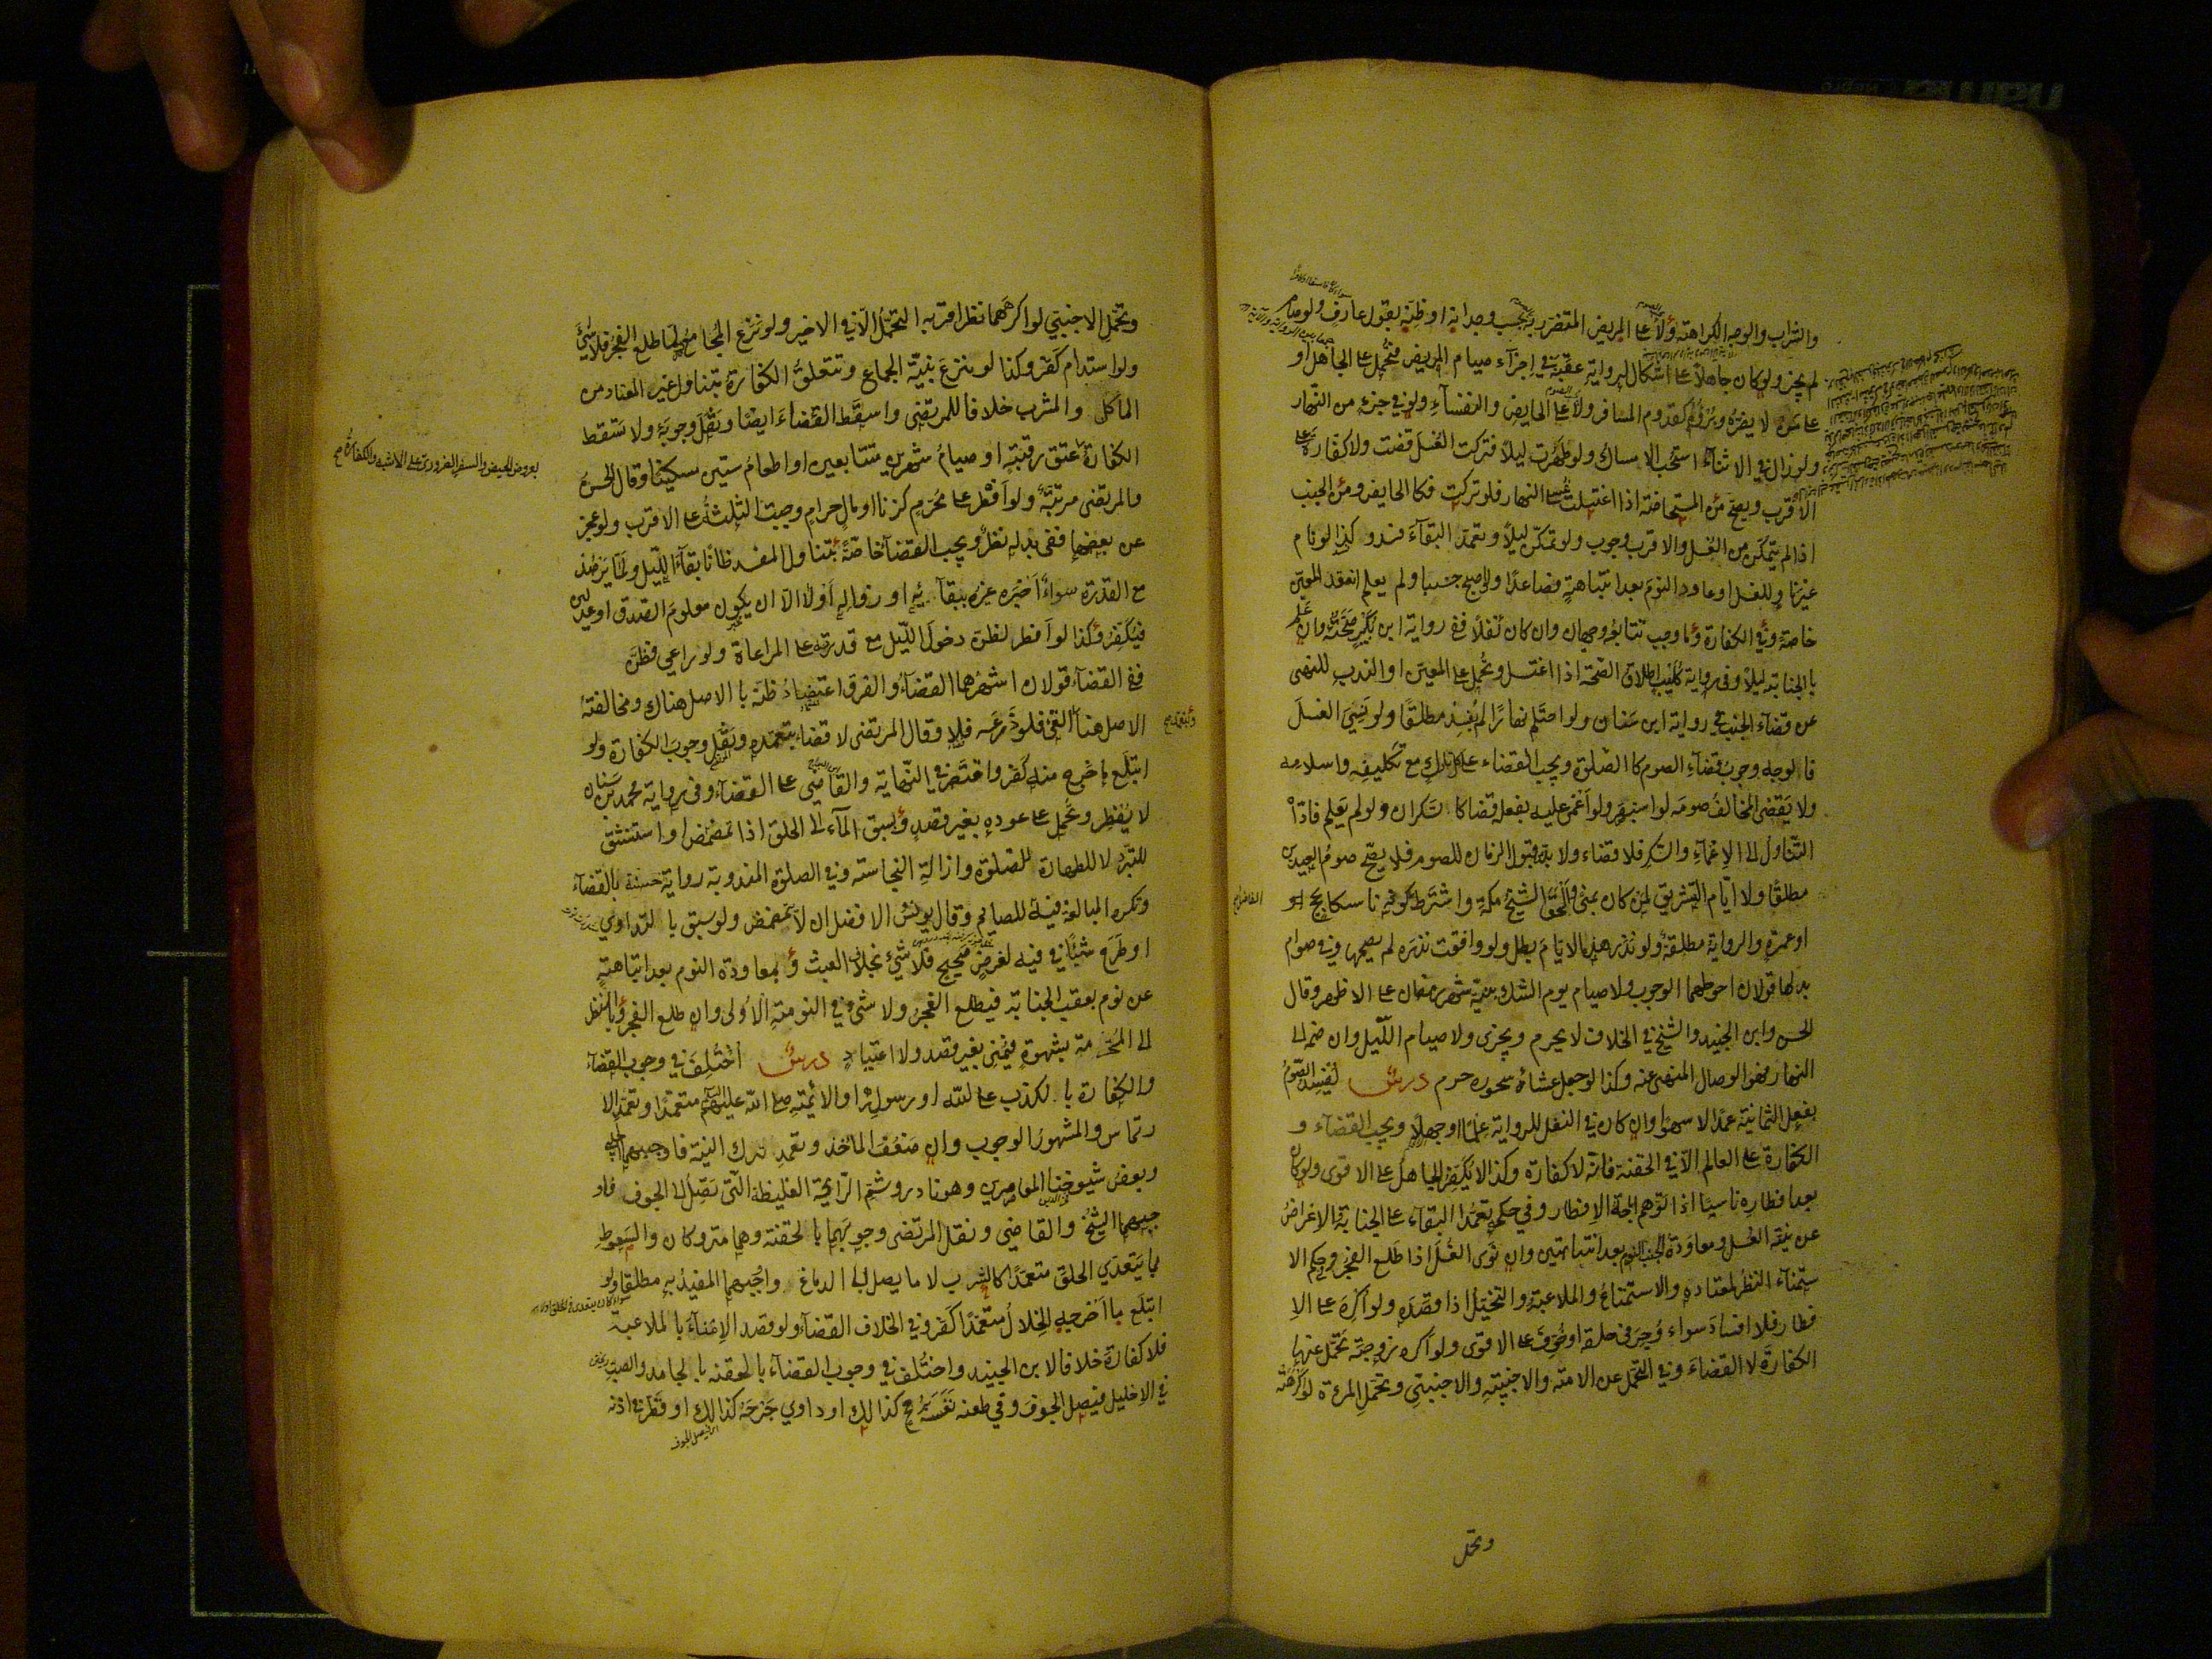 والشراب والوجه الكراهة ولا على المريض المتضرر به بحسب وجدانه او ظنه بقول عارف ولو صام
لم يجز ولو كان جاهلا على اشكال لرواية عقبة في اجزاء صيام المريض فتحمل على الجاهل او
على من لا يضره وبرؤه كقدوم المسافر ولا على الحايض والنفساء ولو في جزء من النهار
ولو زال في الاثناء استحب الامساك ولو طهرت ليلا فتركت الغسل قضت ولا كفارة على
الاقرب ويصح من المستحاضة اذا اغتسلت غسل النهار فلو تركت فكالحايض ومن الجنب
اذا لم يتمكن من الغسل والاقرب وجوب ولو تمكن ليلا وتعمد البقاء فسد وكذا لو نام
غير ناو للغسل او عاود النوم بعد انتباهة فصاعدا ولو اصبح جنبا ولم يعلم انعقد المعين
خاصة وفي الكفارة وما وجب تتابعه وجهان وان كان نفلا ففي رواية ابن بكير صحته وان علم
بالجنابة ليلا وفي رواية كليب اطلاق الصحة اذا اغتسل وتحمل على المعين او الندب للنهي
عن قضاء الجنب في رواية ابن سنان ولو احتلم نهارا لم يفسد مطلقا ولو نسي الغسل
فالوجه وجوب قضاء الصوم كالصلوة ويجب القضاء على تارك مع تكليفه واسلامه
ولا يقضي المخالف صومه لو استبصر ولو اغمي عليه بفعله قضا كالسكران ولو لم يعلم فادّا
التناول الى الاغماء والسكر فلا قضاء ولا بد قبول الزمان للصوم فلا يصح صوم العيدين
مطلقا ولا ايام التشريق لمن كان بمنى والحق الشيخ مكة واشترط كونه ناسكا بحج
او عمرة والرواية مطلقة ولو نذر هذه الايام بطل ولو وافقت نذره لم يصمها وفي صوم
بدلها قولان احوطهما الوجوب ولا صيام يوم الشك بنية شهر رمضان على الاظهر وقال
الحسن وابن الجنيد والشيخ في الخلاف لا يحرم ويجزي ولا صيام الليل وان ضم الى
النهار فهو الوصال المنهي عنه وكذا لو جعل عشاءه سحوره حرم درس يفسد الصوم
بفعل الثمانية عمدا لا سهوا وان كان في النفل للرواية علما او جهلا ويجب القضاء و
الكفارة على العالم الا في الحقنة فانه لا كفارة وكذا لا يكفر الجاهل على الاقوى ولو كان
بعد افطاره ناسيا اذا توهم اباحة الافطار وفي حكم تعمد البقاء على الجنابة الاعراض
عن نية الغسل ومعاودة الجنب النوم بعد انتباهتين وان نوى الغسل اذا طلع الفجر وفي حكم الا
ستمناء النظر لمعتاده والاستمتاع والملاعبة والتخيل اذا قصده ولو اكره على الا
فطار فلا افساد سواء وجر في حلقه او خوف على الاقوى ولو اكره زوجته تحمل عنها
الكفارة لا القضاء وفي التحمل عن الامة والاجنبية والاجنبي وتحمل المرءة لو اكرهته
وتحمل
وتحمل الاجنبي لو اكرههما نظر اقربه التحمل الا في الاخير ولو نزع المجامع لما طلع الفجر فلا شيء
ولو استدام كفر وكذا لو نزع بنية الجماع وتتعلق الكفارة بتناول غير المعتاد من
المأكل والمشرب خلافا للمرتضى واسقط القضاء ايضا ونقل وجوبه ولا تسقط
بعروض الحيض والسفر الضروري على الاشبه والكفارة صح
الكفارة عتق رقبة او صيام شهرين متتابعين او اطعام ستين مسكينا وقال الحسن
والمرتضى مرتبة ولو افطر على محرم كزنا او مال حرام وجبت الثلثة على الاقرب ولو عجز
عن بعضها ففي بدله نظر ويجب القضاء خاصة بتناول المفسد ظانا بقاء الليل ولما يرصد
مع القدرة سواء اخبره غيره ببقائه او زواله اولا الا ان يكون معلوم الصدق او عدلين
فيكفر وكذا لو افطر لظن دخول الليل مع قدرته على المراعاة ولو راعى فظن
ففي القضاء قولان اشهرهما القضاء والفرق اعتضاد ظنه بالاصل هناك ومخالفته
الاصل هنا القيء فلو ذرعه فلا وقال المرتضى لا قضاء بتعمده ونقل وجوب الكفارة ولو
ابتلع ما خرج منه كفر واقتصر في النهاية والقاضي على القضاء وفي رواية محمد بن سنان
لا يفطر وتحمل على عوده بغير قصد وبسبق الماء الى الحلق اذا تمضمض او استنشق
للتبرد لا للطهارة للصلوة وازالة النجاسة وفي الصلوة المندوبة رواية حسنة بالقضاء
وتكره المبالغة فيه للصايم وقال يونس الافضل ان لا يتمضمض ولو سبق بالتداوي
او طرح شيئا في فيه لغرض صحيح فلا شيء بخلاف العبث وبمعاودة النوم بعد انتباهة
عن نوم بعقب الجنابة فيطلع الفجر ولا شيء في النومة الاولى وان طلع الفجر وبالنظر
الى المحرمة بشهوة فيمني بغير قصد ولا اعتياد درس اختلف في وجوب القضاء
والكفارة بالكذب على الله او رسوله او الائمة صلى الله عليهم متعمدا وتعمد الا
رتماس والمشهور الوجوب وان ضعف المأخذ وتعمد ترك النية فاوجبهما الحلبي
وبعض شيوخنا المعاصرين وهو نادر وشم الرايحة الغليظة التي تصل الى الجوف فاو
جبهما الشيخ والقاضي ونقل المرتضى وجوبهما بالحقنة وهما متروكان والسعوط
بما يتعدى الحلق متعمدا كالشرب لا ما يصل الى الدماغ واوجبهما المفيد به مطلقا ولو
ابتلع ما اخرجه الخلال متعمدا كفر وفي الخلاف القضاء ولو قصد الامناء بالملاعبة
فلا كفارة خلافا لابن الجنيد واختلف في وجوب القضاء بالحقنة بالجامد والصب
في الاحليل فيصل الجوف وفي طعنه نفسه برمح كذلك او داوى جرحه كذلك او قطر في اذنه